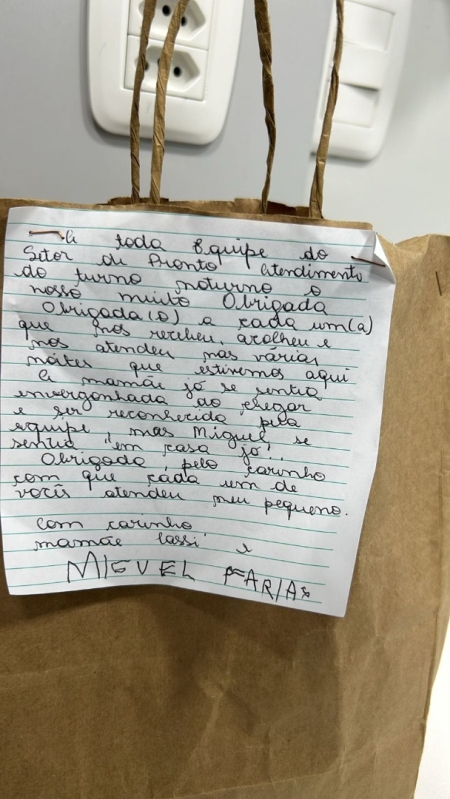 A toda Equipe do
Setor de Pronto Atendimento
do turno noturno o
nosso muito Obrigada
Obrigada(o) a cada um(a)
que nos recebeu, acolheu e
nos atendeu nas várias
noites que estivemos aqui
A mamãe já se sentia
envergonhada ao chegar
e ser reconhecida pela
equipe, mas Miguel se
sentia "em casa já".
Obrigada pelo carinho
com que cada um de
vocês atendeu meu pequeno.
Com carinho
mamãe Cassi e
MIGUEL FARIAS